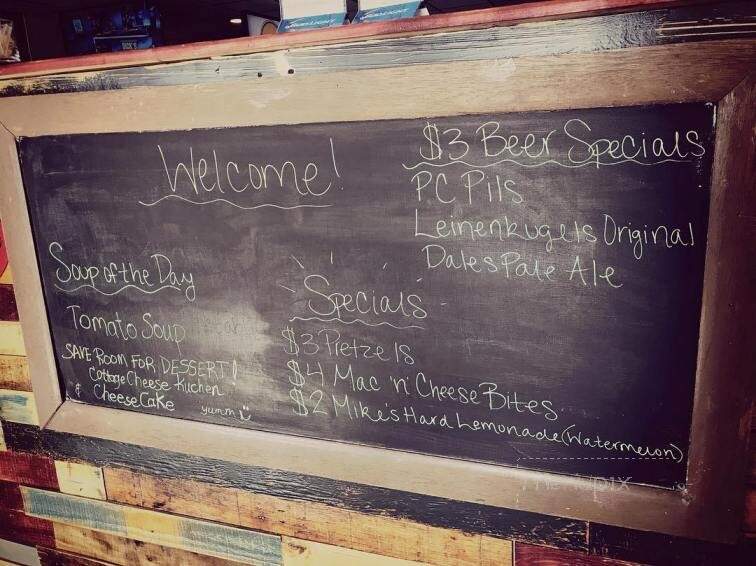 Welcome!
$3 Beer Specials
PC Pils
Leinenkugels Original
Dales Pale Ale
Soup of the Day
Tomato Soup
SAVE ROOM FOR DESSERT!
Cottage Cheese Kuchen
& CheeseCake yumm
Specials
$3 Pretzels
$4 Mac 'n' Cheese Bites
$2 Mike's Hard Lemonade (Watermelon)